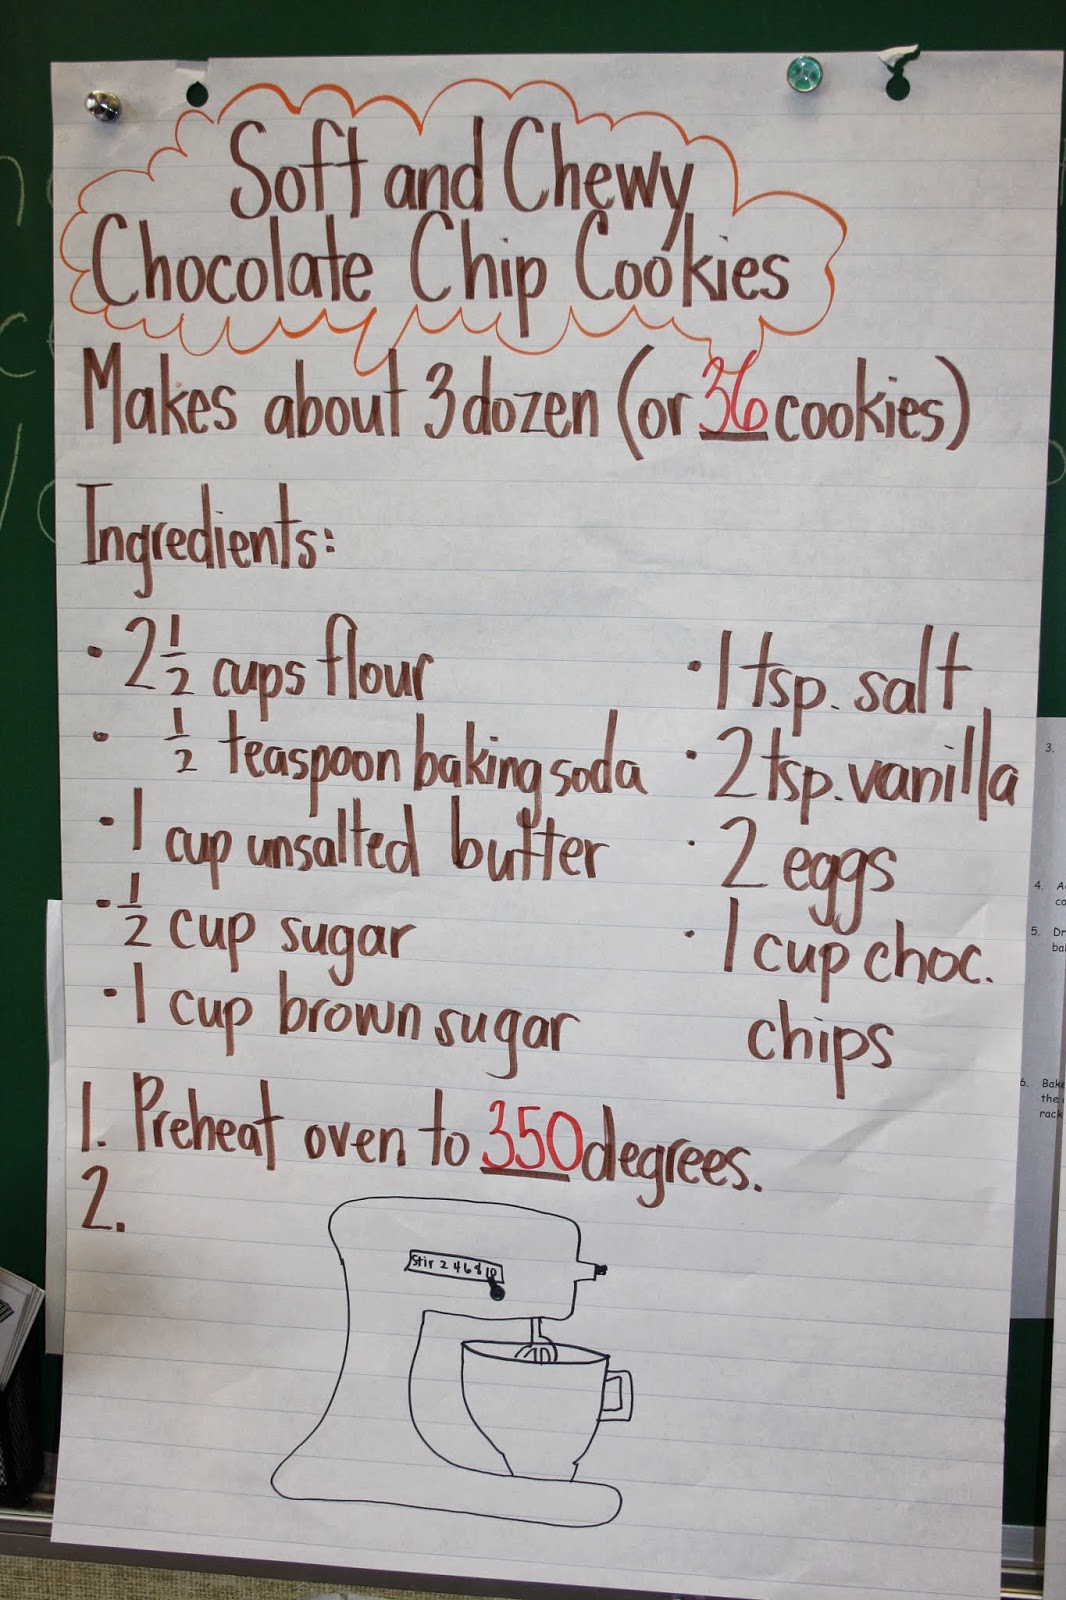 Soft and Chewy
Chocolate Chip Cookies
Makes about 3 dozen (or 36 cookies)
Ingredients:
• 2 1/2 cups flour
• 1/2 teaspoon baking soda
• 1 cup unsalted butter
• 1/2 cup sugar
• 1 cup brown sugar
• 1 tsp. salt
• 2 tsp. vanilla
• 2 eggs
• 1 cup choc.
chips
1. Preheat oven to 350 degrees.
2.
Stir 2 4 6 8 10
3.
4.
5.
6. Bake
the
rack